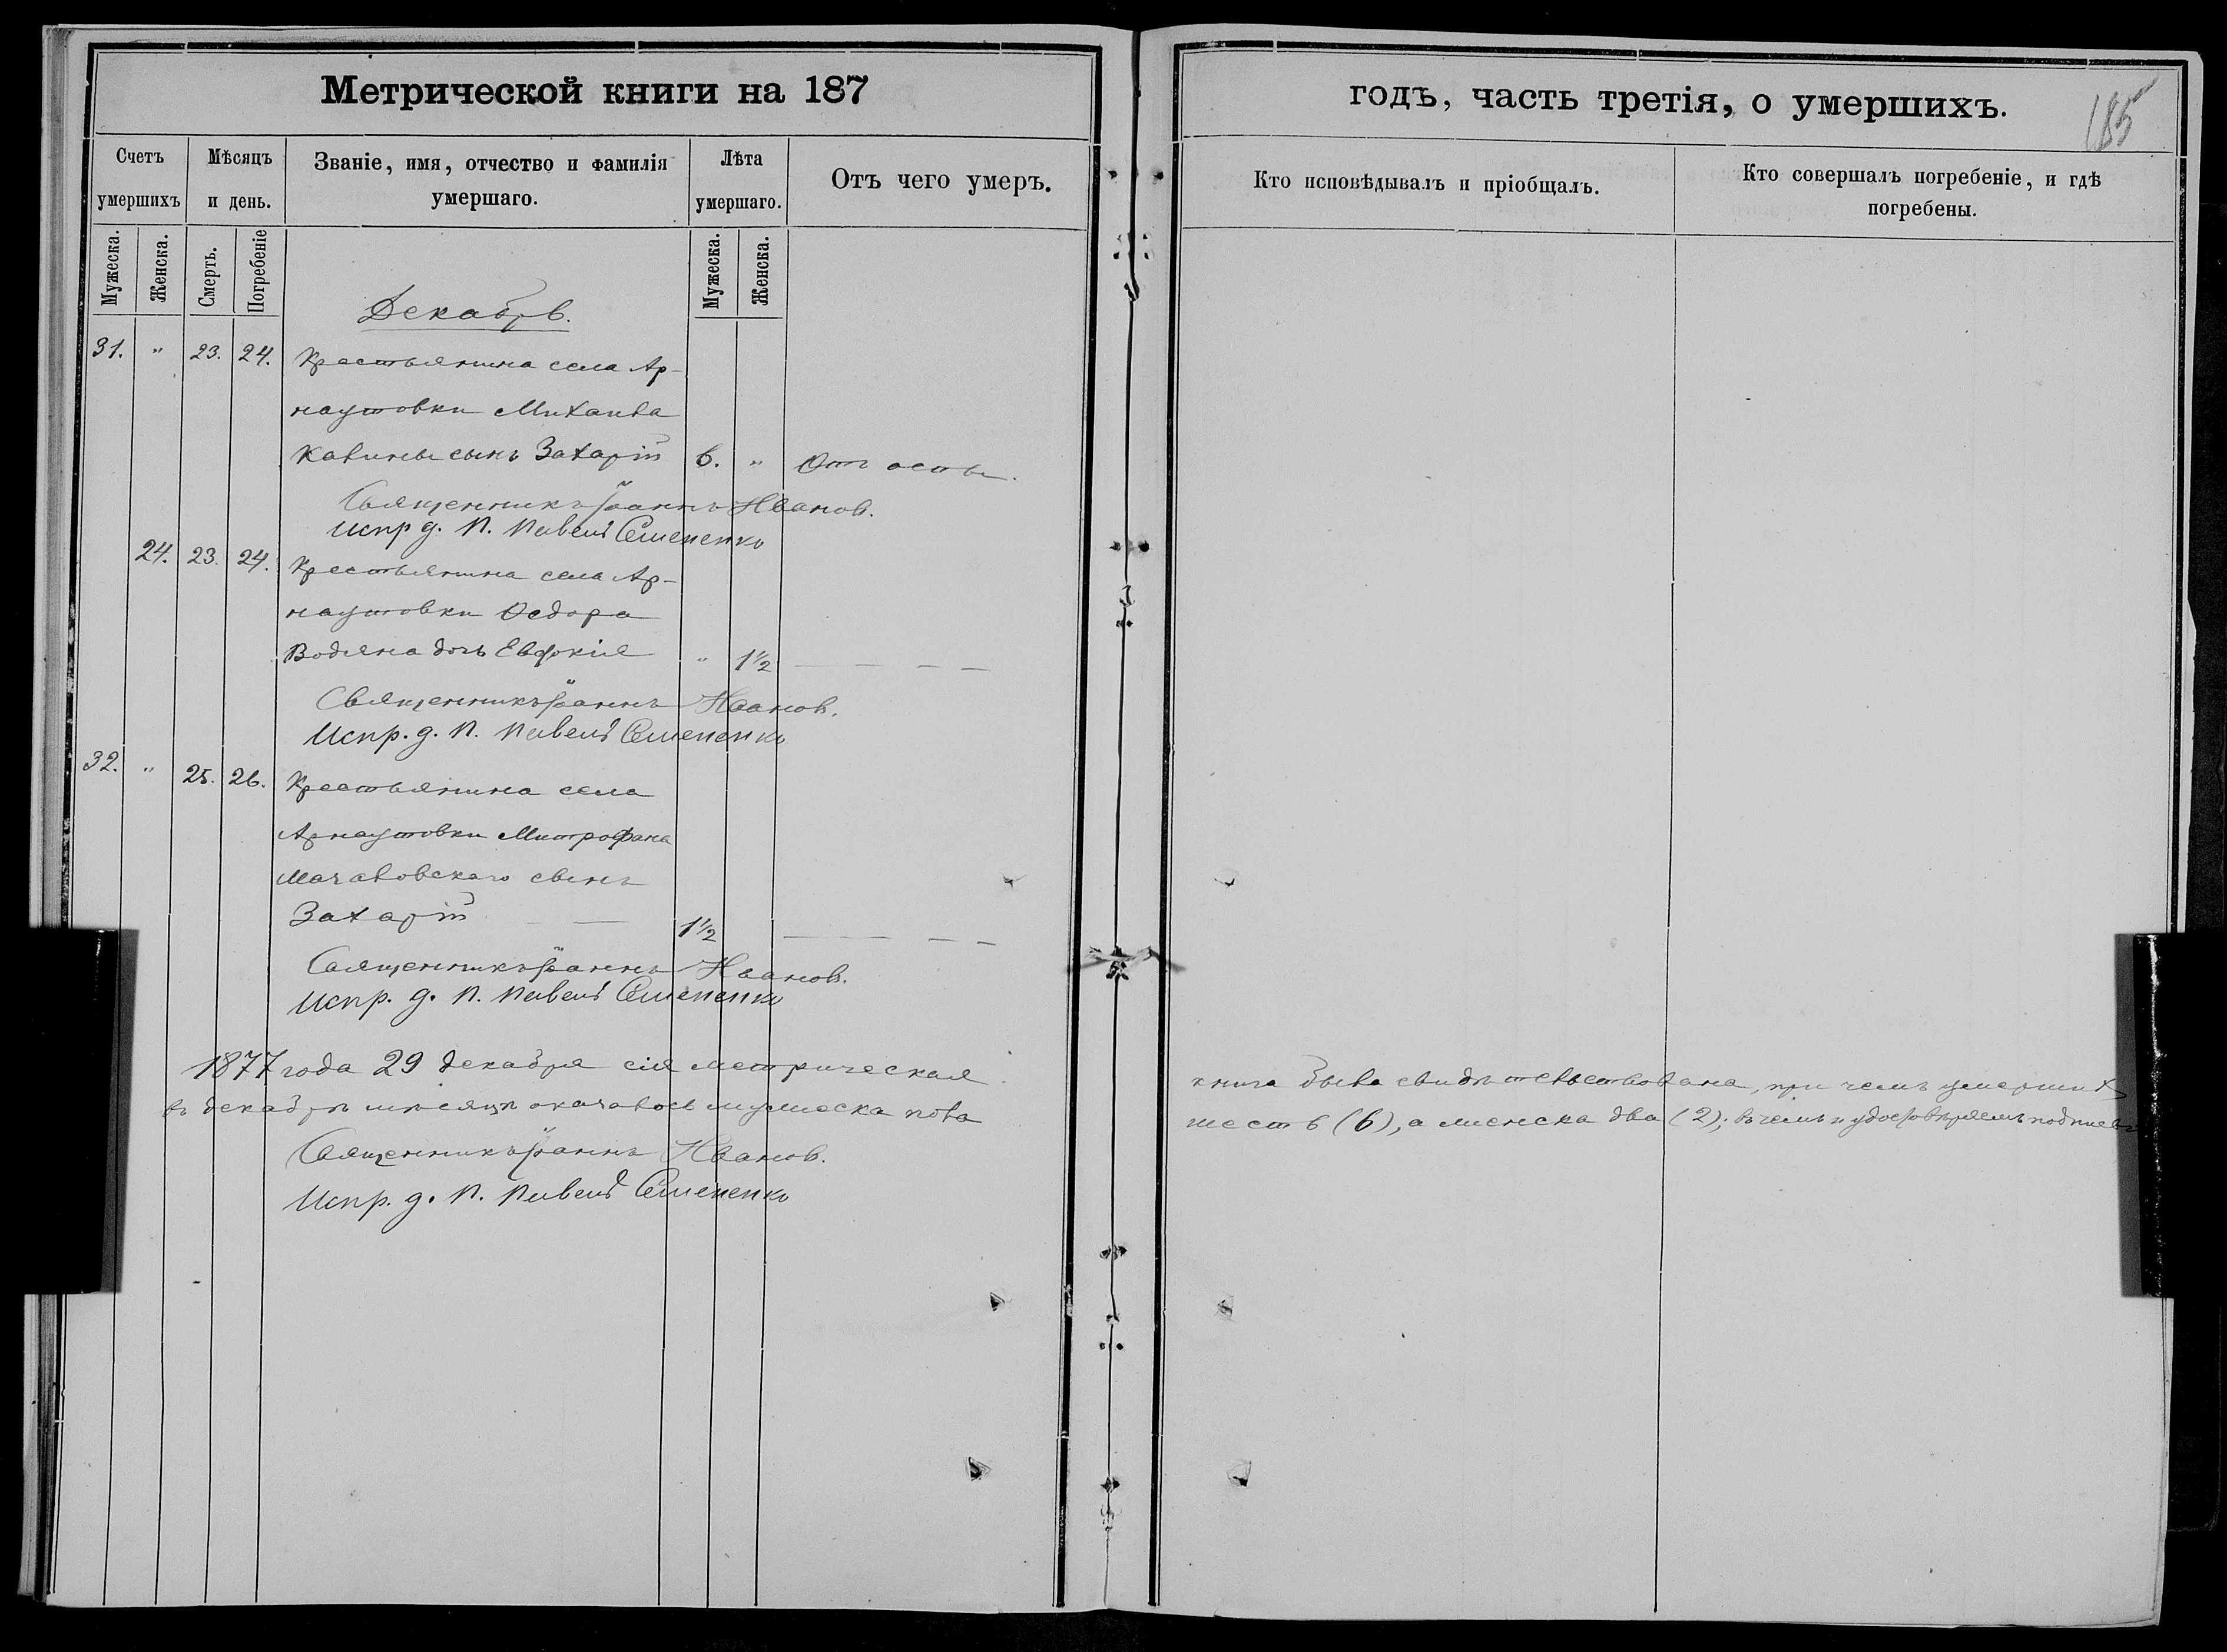 Метрической книги на 187
годъ, часть третія, о умершихъ.
185
Счетъ умершихъ
Мѣсяцъ и день.
Званіе, имя, отчество и фамилія умершаго.
Лѣта умершаго.
Отъ чего умеръ.
Кто исповѣдывалъ и пріобщалъ.
Кто совершалъ погребеніе, и гдѣ погребены.
Мужеска.
Женска.
Смерть.
Погребеніе
Мужеска.
Женска.
Декабрь.
31. " 23. 24. Крестьянина села Ар-
наутовки Михаила
сынъ Захарій 6. " Отъ оспы.
Священникъ Іоаннъ Иванов.
Испр. д. П. Павелъ Семененко
24. 23. 24. Крестьянина села Ар-
наутовки Ѳедора
Водяна дочь " 1½ — — — —
Священникъ Іоаннъ Иванов.
Испр. д. П. Павелъ Семененко
32. " 25. 26. Крестьянина села
Арнаутовки Митрофана
Мачаловскаго сынъ
Захарій — — 1½ — — —
Священникъ Іоаннъ Иванов.
Испр. д. П. Павелъ Семененко
1877 года 29 декабря сія метрическая книга была свидѣтельствована, при чемъ умершихъ
въ декабрѣ мѣсяцѣ оказалось мужеска пола шесть (6), а женска два (2); въ чемъ и удостовѣряемъ подписью
Священникъ Іоаннъ Иванов.
Испр. д. П. Павелъ Семененко